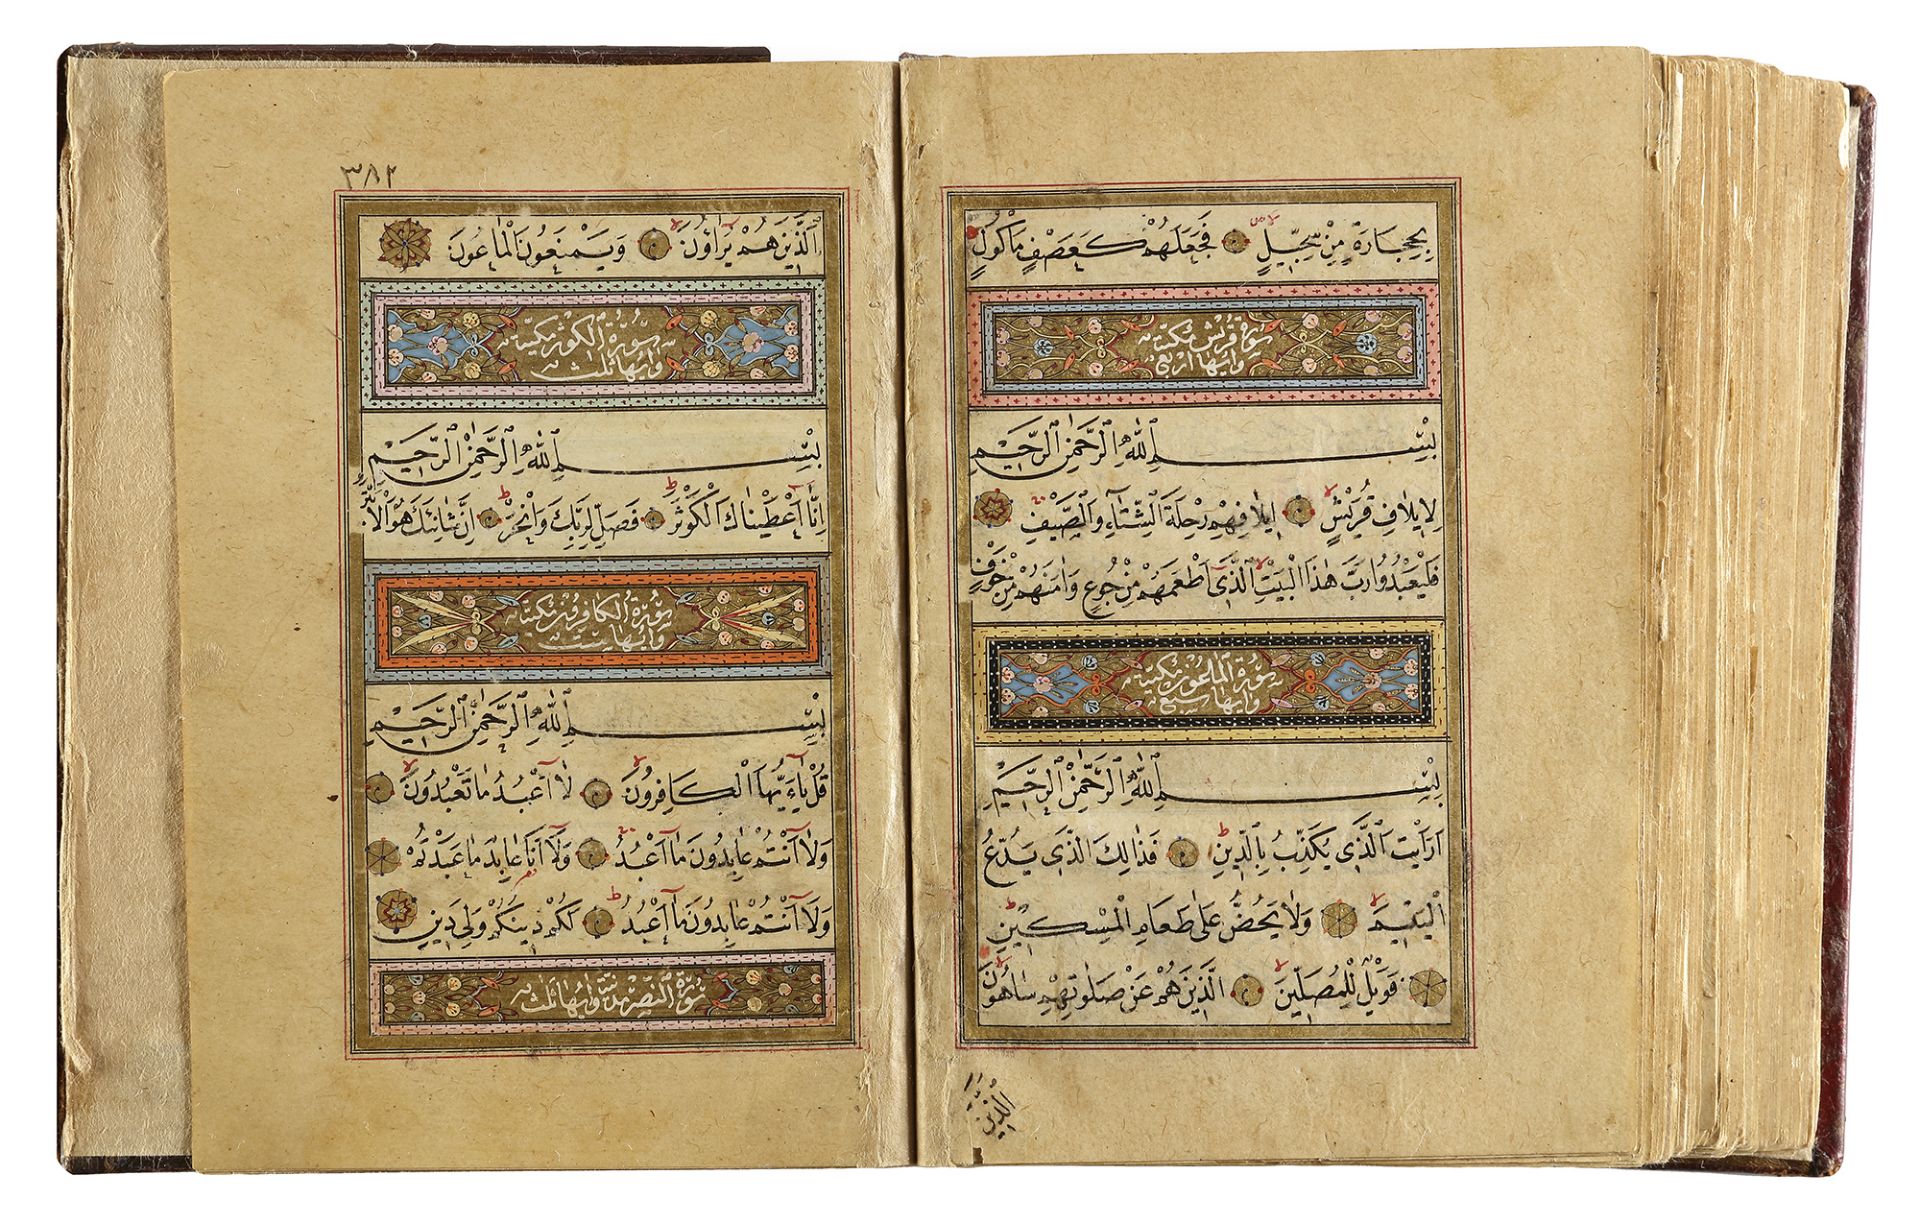 بِحِجَارَةٍ مِنْ سِجِّيلٍ فَجَعَلَهُمْ كَعَصْفٍ مَأْكُولٍ
سورة قريش مكية
وآيها اربع
بِسْمِ اللَّهِ الرَّحْمٰنِ الرَّحِيمِ
لِإِيلَافِ قُرَيْشٍ إِيلَافِهِمْ رِحْلَةَ الشِّتَاءِ وَالصَّيْفِ
فَلْيَعْبُدُوا رَبَّ هٰذَا الْبَيْتِ الَّذِي أَطْعَمَهُمْ مِنْ جُوعٍ وَاٰمَنَهُمْ مِنْ خَوْفٍ
سورة الماعون مكية
وآيها سبع
بِسْمِ اللَّهِ الرَّحْمٰنِ الرَّحِيمِ
اَرَاَيْتَ الَّذِي يُكَذِّبُ بِالدِّينِ فَذَالِكَ الَّذِي يَدُعُّ
الْيَتِيمَ وَلَا يَحُضُّ عَلَى طَعَامِ الْمِسْكِينِ
فَوَيْلٌ لِلْمُصَلِّينَ الَّذِينَ هُمْ عَنْ صَلَاتِهِمْ سَاهُونَ
الَّذِينَ
٣٨٢
اَلَّذِينَ هُمْ يُرَاؤُنَ وَيَمْنَعُونَ الْمَاعُونَ
سورة الكوثر مكية
وآيها ثلث
بِسْمِ اللَّهِ الرَّحْمٰنِ الرَّحِيمِ
اِنَّا اَعْطَيْنَاكَ الْكَوْثَرَ فَصَلِّ لِرَبِّكَ وَانْحَرْ اِنَّ شَانِئَكَ هُوَ الْاَبْتَرُ
سورة الكافرون مكية
وآيها ست
بِسْمِ اللَّهِ الرَّحْمٰنِ الرَّحِيمِ
قُلْ يَاءَيُّهَا الْكَافِرُونَ لَا اَعْبُدُ مَا تَعْبُدُونَ
وَلَا اَنْتُمْ عَابِدُونَ مَا اَعْبُدُ وَلَا اَنَا عَابِدٌ مَا عَبَدْتُمْ
وَلَا اَنْتُمْ عَابِدُونَ مَا اَعْبُدُ لَكُمْ دِينُكُمْ وَلِيَ دِينِ
سورة النصر مدنية وآيها ثلث